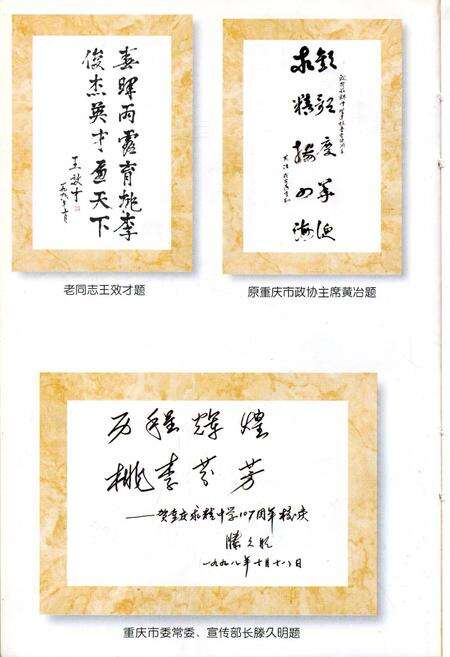 春晖雨露育桃李
俊杰英才盈天下
王效才
一九九八年十月
老同志王效才题
求精扬四海
原重庆市政协主席黄冶题
历程辉煌
桃李芬芳
——贺重庆求精中学107周年校庆
滕久明
一九九八年十月十八日
重庆市委常委、宣传部长滕久明题